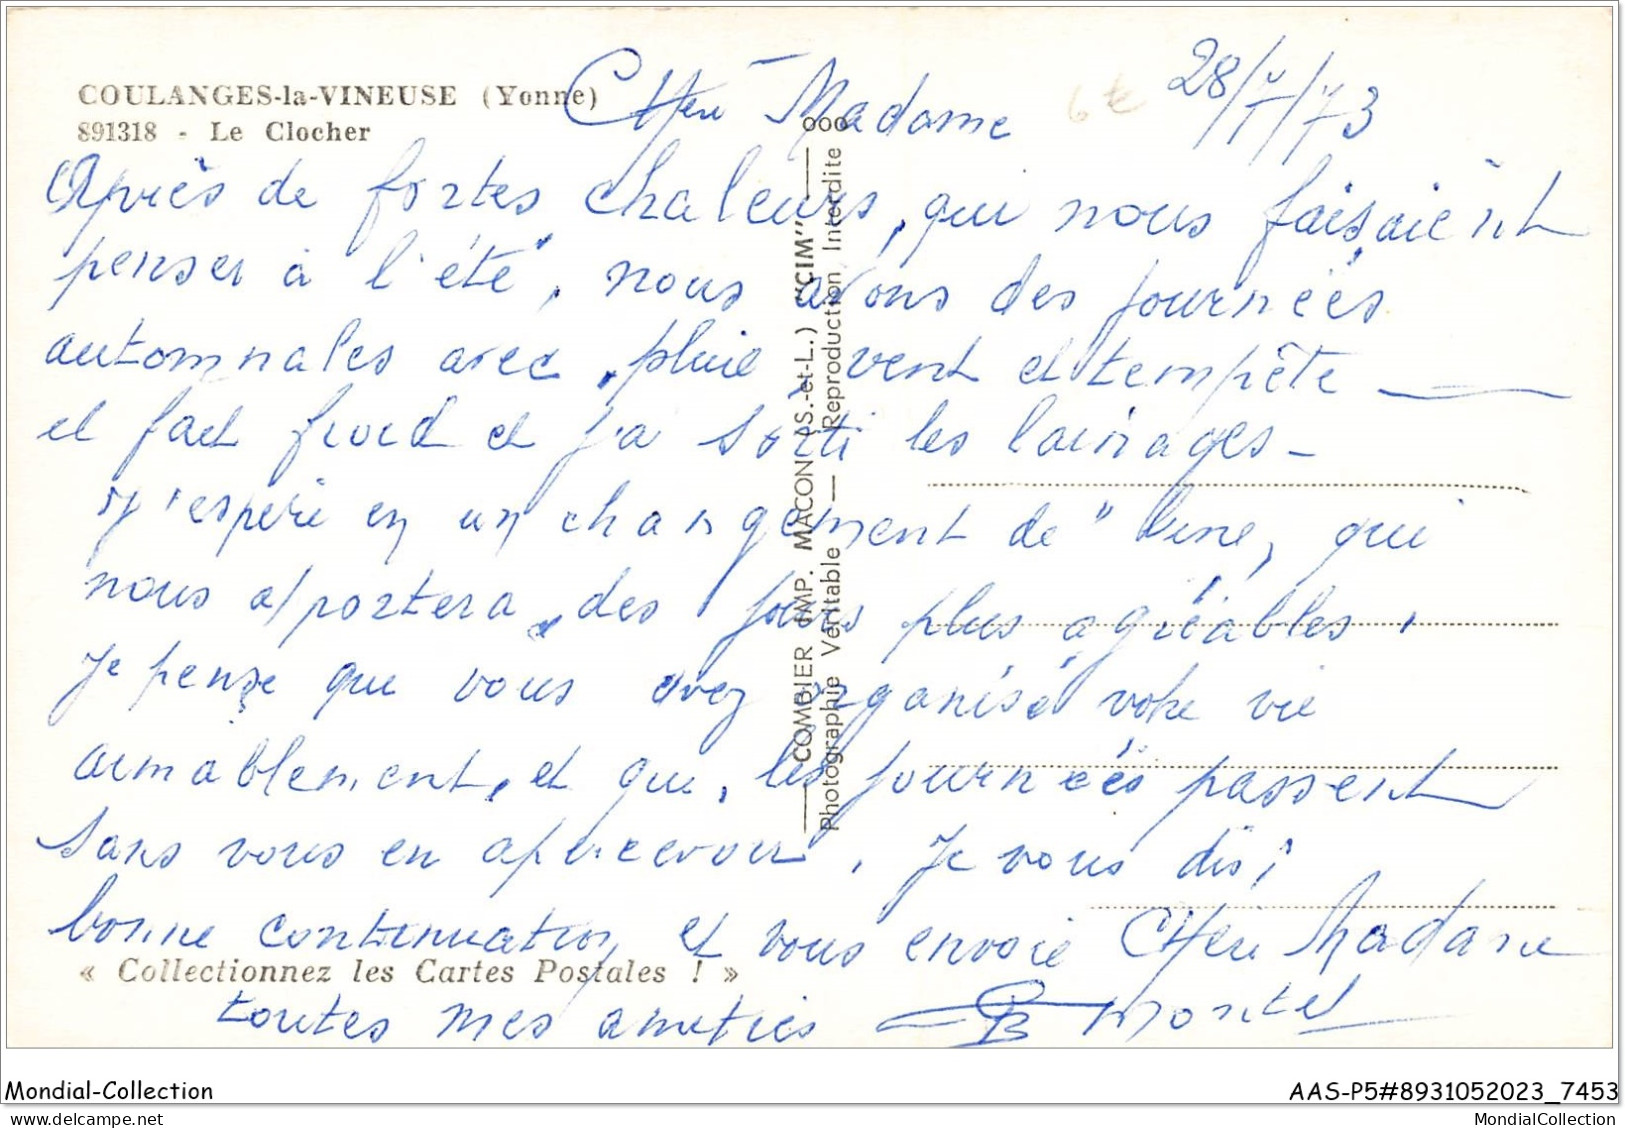 COULANGES-la-VINEUSE (Yonne)
891318 - Le Clocher
Chère Madame
6€
28/7/73
Après de fortes chaleurs, qui nous faisaient
penser à l'été, nous avons des journées
automnales avec, pluie, vent et tempête —
il fait froid et j'ai sorti les lainages -
J'espère en un changement de "lune, qui
nous apportera des jours plus agréables,
Je pense que vous avez organisé votre vie
aimablement, et que, les journées passent
sans vous en apercevoir. Je vous dis,
bonne continuation et vous envoie Chère Madame
toutes mes amitiés
COMBIER IMP. MACON (S.-et-L.) "CIM"
Photographie Véritable — Reproduction Interdite
« Collectionnez les Cartes Postales ! »
Mondial-Collection
AAS-P5#8931052023_7453
MondialCollection